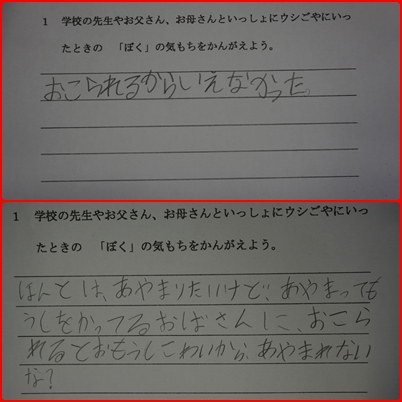 1　学校の先生やお父さん、お母さんといっしょにウシごやにいっ
たときの　「ぼく」の気もちをかんがえよう。
おこられるからいえなかった。
1　学校の先生やお父さん、お母さんといっしょにウシごやにいっ
たときの　「ぼく」の気もちをかんがえよう。
ほんとは、あやまりたいけど、あやまっても
うしをかってるおばさんに、おこら
れるとおもうしこわいから、あやまれない
な？